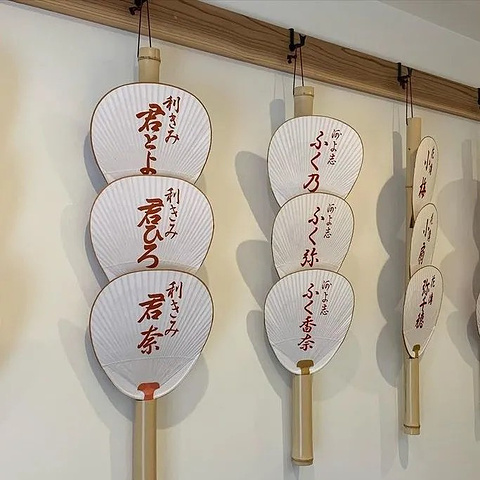 利きみ
君とよ
利きみ
君ひろ
利きみ
君奈
河よ志
ふく乃
河よ志
ふく弥
河よ志
ふく香奈